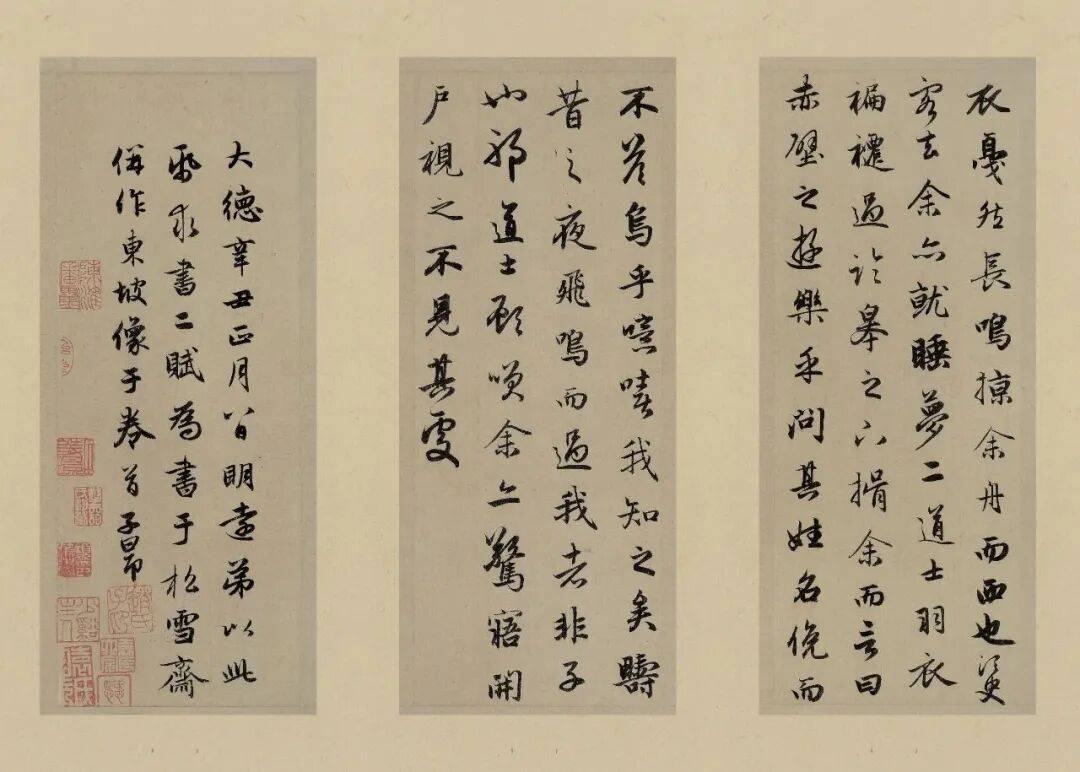 衣戛然長鳴掠余舟而西也須臾
客去余亦就睡夢二道士羽衣
褊褼過臨皋之下揖余而言曰
赤壁之遊樂乎問其姓名俛而
不荅烏乎噫嘻我知之矣疇
昔之夜飛鳴而過我者非子
也邪道士顧笑余亦驚寤開
戶視之不見其處
大德辛丑正月八日明遠弟以此
紙求書二賦為書于松雪齋
併作東坡像于卷首子昂